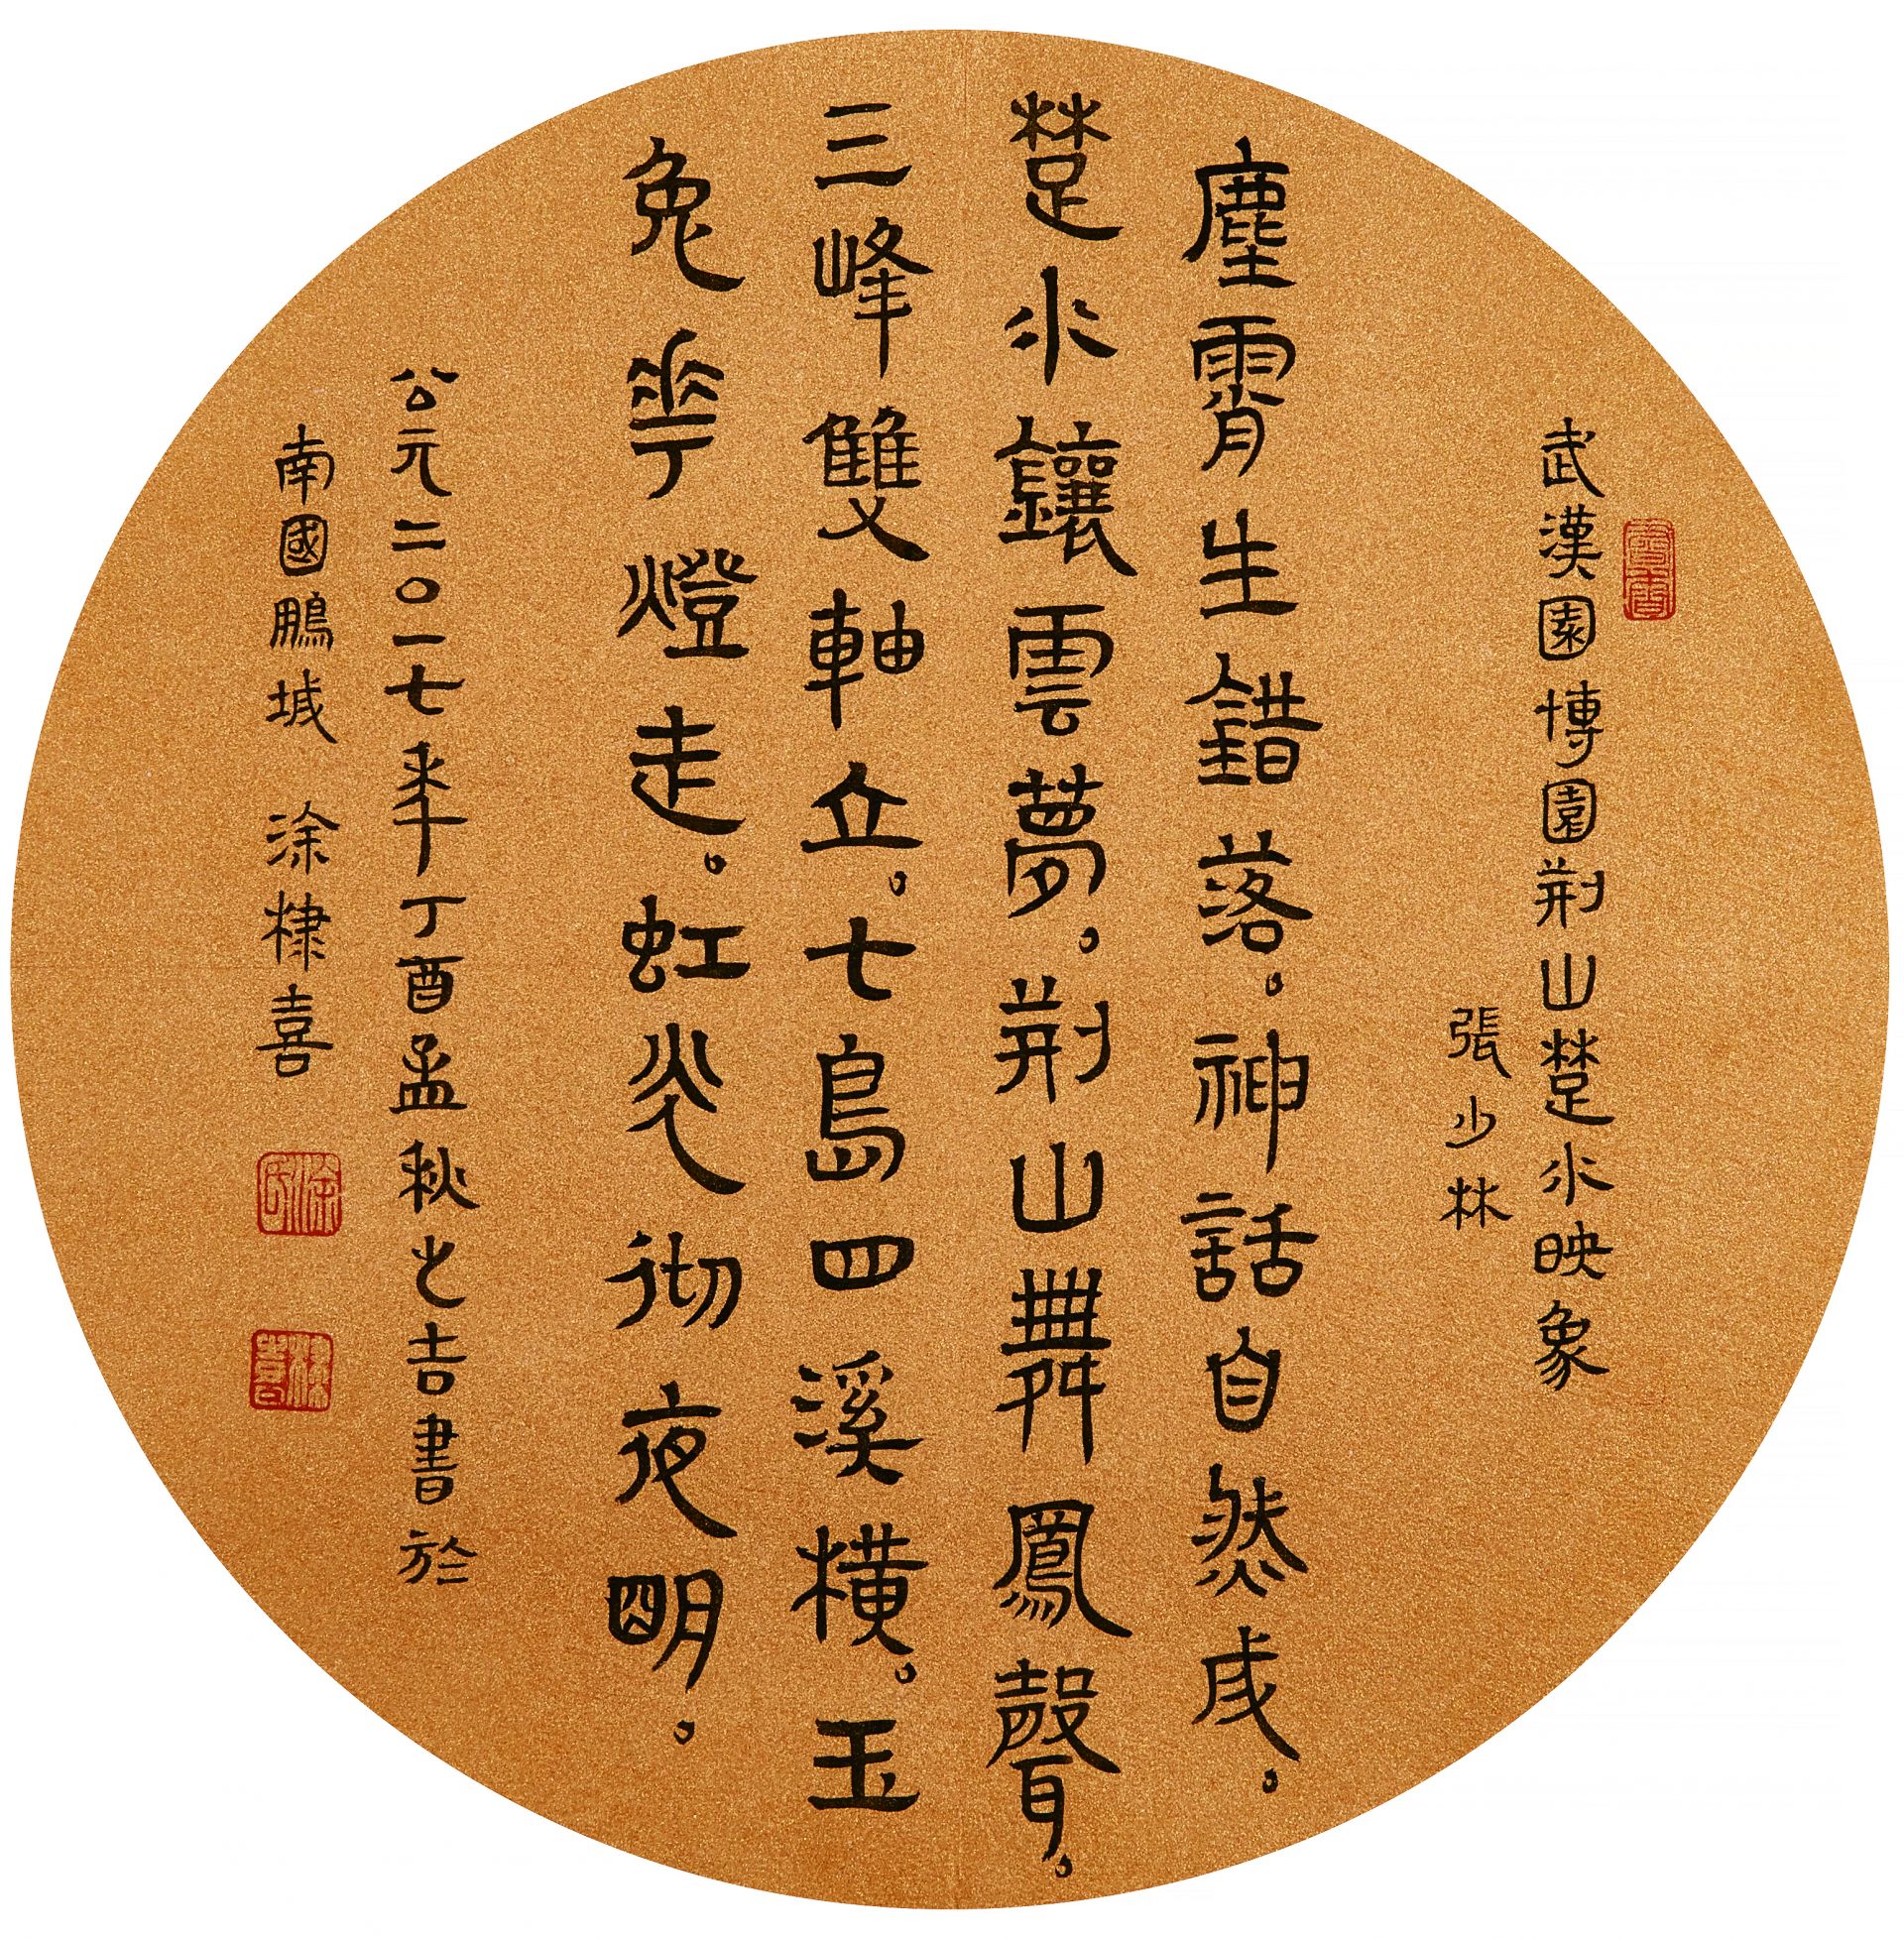 武漢園博園荊山楚水映象
張少林
塵霄生錯落。神話自然成。
楚水鑲雲夢。荊山舞鳳聲。
三峰雙軸立。七島四溪橫。玉
兔華燈走。虹光彻夜明。
公元二〇一七年丁酉孟秋之吉書於
南國鵬城 涂棣喜